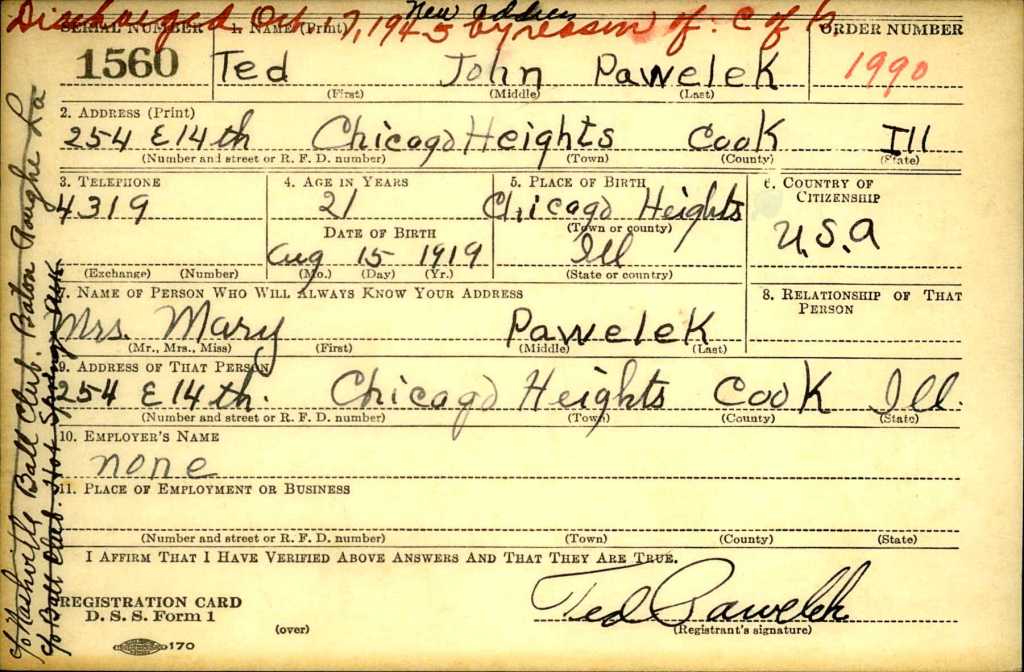 New address
Discharged Oct 17, 1945 by reason of: C of
SERIAL NUMBER 1. NAME (Print) ORDER NUMBER
1560 Ted John Pawelek 1990
(First) (Middle) (Last)
2. ADDRESS (Print)
254 E 14th Chicago Heights Cook Ill
(Number and street or R. F. D. number) (Town) (County) (State)
3. TELEPHONE 4. AGE IN YEARS 5. PLACE OF BIRTH 6. COUNTRY OF CITIZENSHIP
4319 21 Chicago Heights U.S.A
(Town or county)
DATE OF BIRTH
Aug 15 1919 Ill
(Exchange) (Number) (Mo.) (Day) (Yr.) (State or country)
7. NAME OF PERSON WHO WILL ALWAYS KNOW YOUR ADDRESS 8. RELATIONSHIP OF THAT PERSON
Mrs. Mary Pawelek
(Mr., Mrs., Miss) (First) (Middle) (Last)
9. ADDRESS OF THAT PERSON
254 E 14th. Chicago Heights Cook Ill.
(Number and street or R. F. D. number) (Town) (County) (State)
10. EMPLOYER'S NAME
none
11. PLACE OF EMPLOYMENT OR BUSINESS
(Number and street or R. F. D. number) (Town) (County) (State)
I AFFIRM THAT I HAVE VERIFIED ABOVE ANSWERS AND THAT THEY ARE TRUE.
Ted Pawelek
REGISTRATION CARD
D. S. S. Form 1
(over) (Registrant's signature)
170
c/o Nashville Ball Club. Baton Rouge La
c/o Ball Club. Hot Springs Ark.